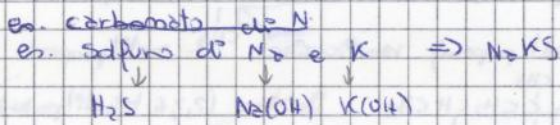 es. carbonato di N
es. solfuro di Na e K => NaKS
H₂S Na(OH) K(OH)